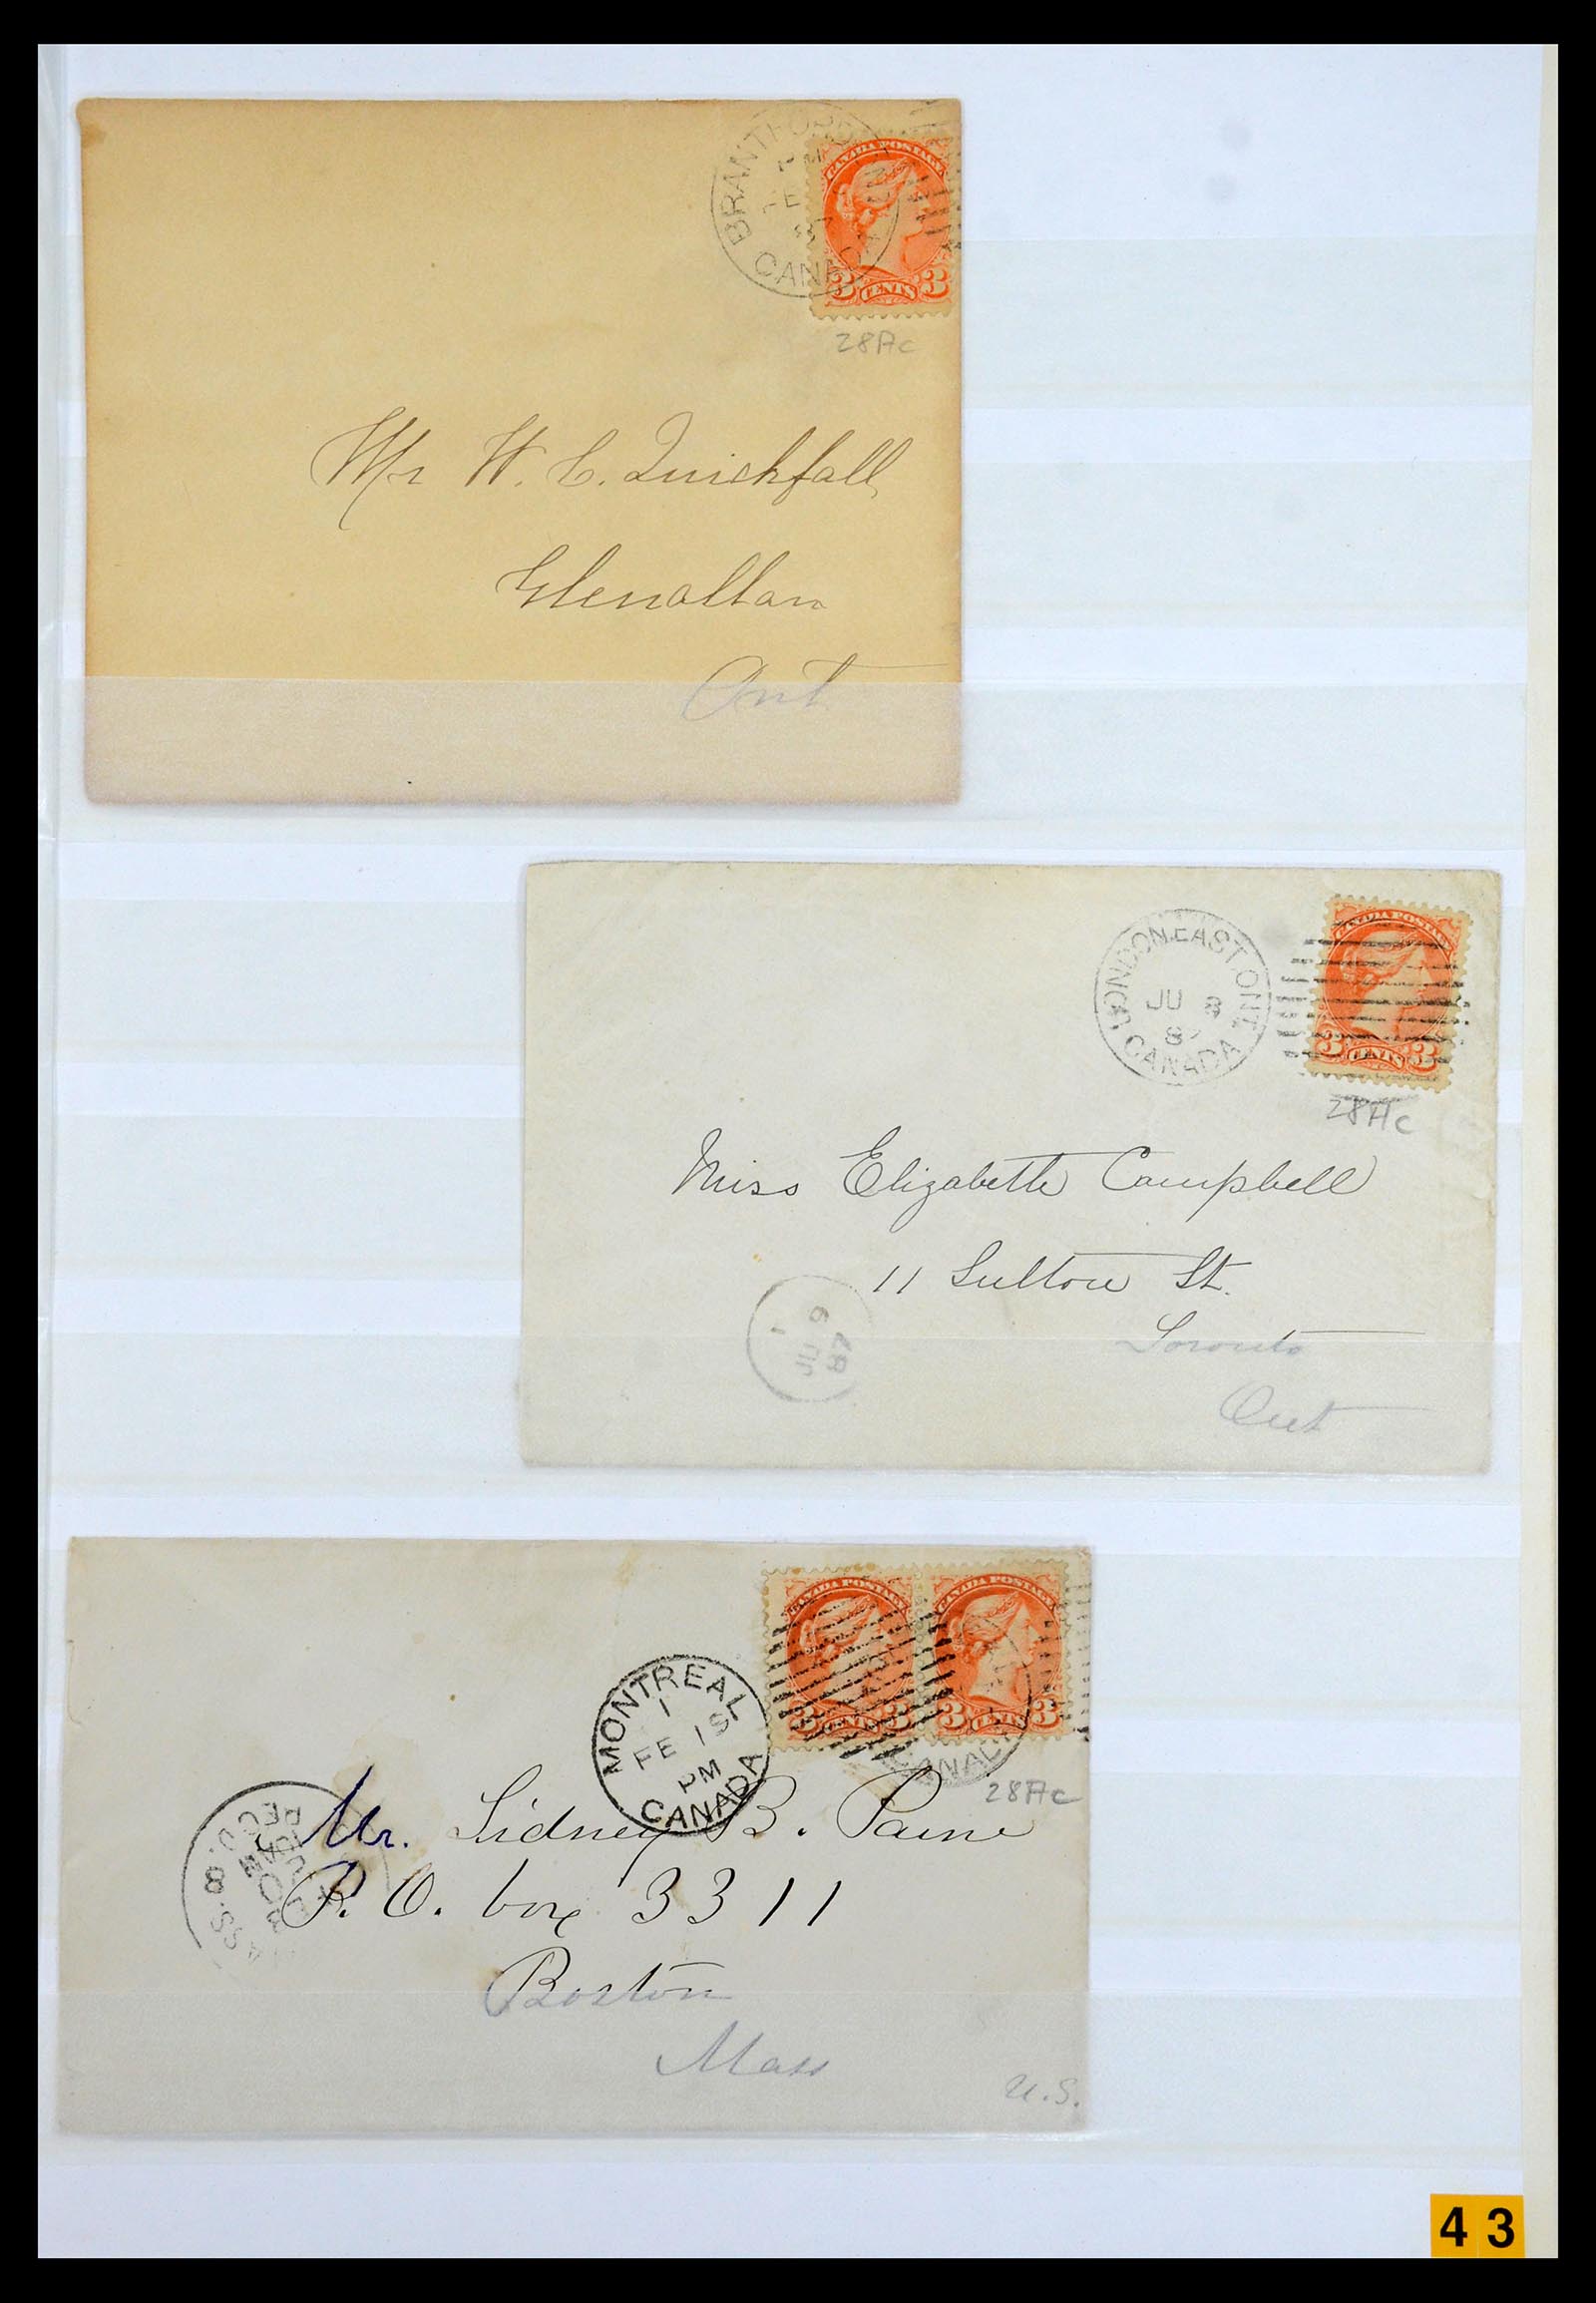 BRANTFORD
CANADA
CANADA POSTAGE
3 CENTS 3
28Ac
Mr W. C. Quickfall
Glenallan
Ont
LONDON.EAST ONT.
JU 8
87
CANADA
CANADA POSTAGE
3 CENTS 3
28Ac
Miss Elizabeth Campbell
11 Sulton St.
Toronto
Ont
1
JU 9
87
CANADA POSTAGE
CANADA POSTAGE
3 CENTS 3
3 CENTS 3
MONTREAL
1
FE 19
PM
CANADA
CANADA
28Ac
REC'D.
8
Mr. Sidney B. Paine
P. O. box 3311
Boston
Mass
U.S.
43